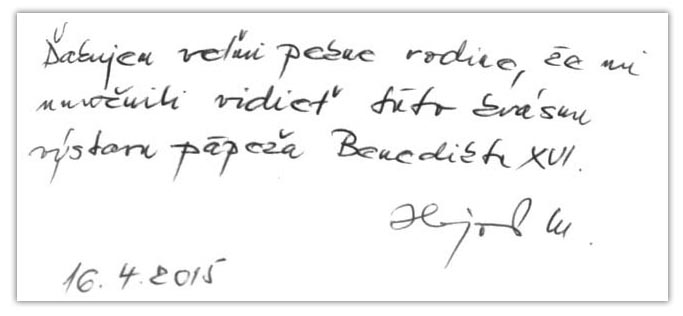 Ďakujem veľmi pekne rodine, že mi
umožnili vidieť túto krásnu
výstavu pápeža Benedikta XVI.
16.4.2015